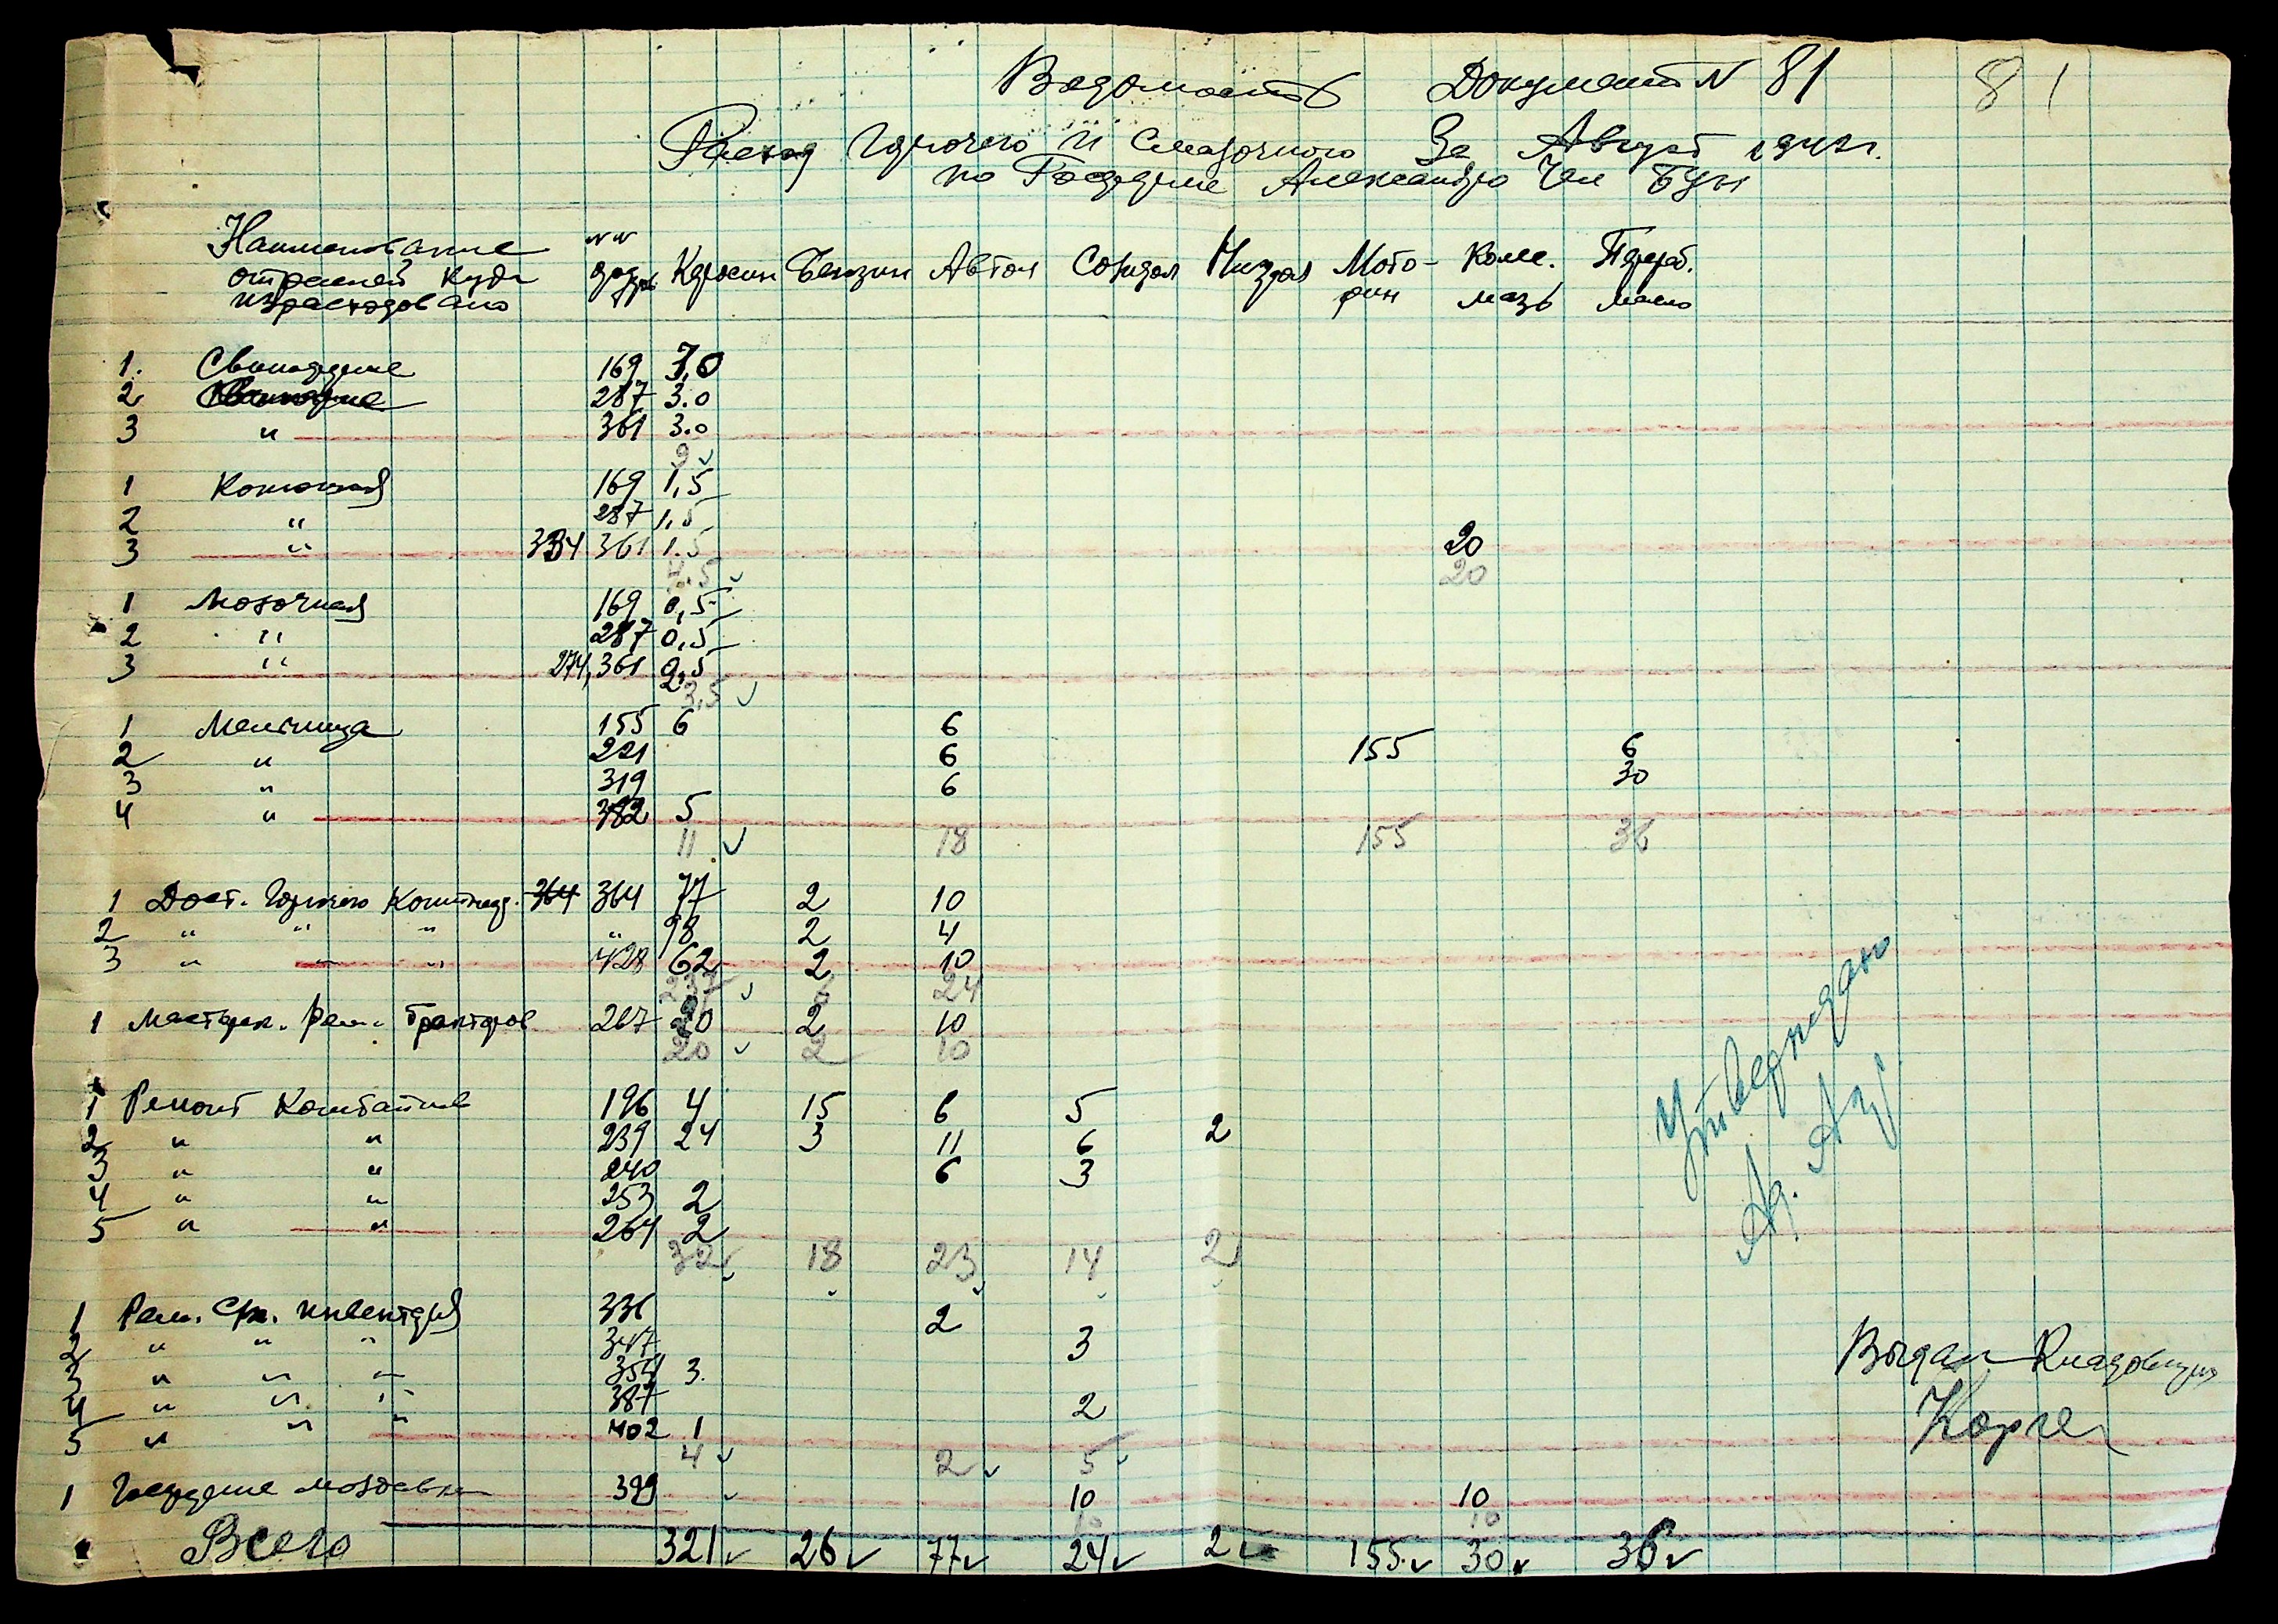 Ведомость Документ N 81 81
Расход Горючего и Смазочного За Август 1942г.
по Госдарме Александро
Наименование отраслей куда израсходовано №№ Керосин Бензин Автол Солидол Нигрол Мото- рин Колес. мазь Перераб. масло
1. 169 3,0
2 287 3.0
3 " 361 3.0
9
1 Конюшня 169 1,5
2 " 287 1,5
3 " 334 361 1.5 20
4.5 20
1 Молочная 169 0,5
2 " 287 0,5
3 " 274, 361 2,5
3,5
1 Мельница 155 6 6
2 " 221 6 155 6
3 " 319 6 30
4 " 382 5
11 18 155 36
1 Дост. Горючего 364 364 77 2 10
2 " " " " 98 2 4
3 " " " 428 62 2 10
237 6 24
1 Мастерск. Рем. Тракторов 267 20 2 10
20 2 10
1 Ремонт Комбайнов 196 4 15 6 5
2 " " 239 24 3 11 6 2
3 " " 240 6 3
4 " " 253 2
5 " " 264 2
32 18 23 14 2
1 Рем. инвентаря 336 2
2 " " " 347 3
3 " " " 354 3.
4 " " " 387 2
5 " " " 402 1
4 2 5
1 399 10 10
10 10
Всего 321 26 77 24 2 155 30 36
Утверждаю
Выдал Кладовщик